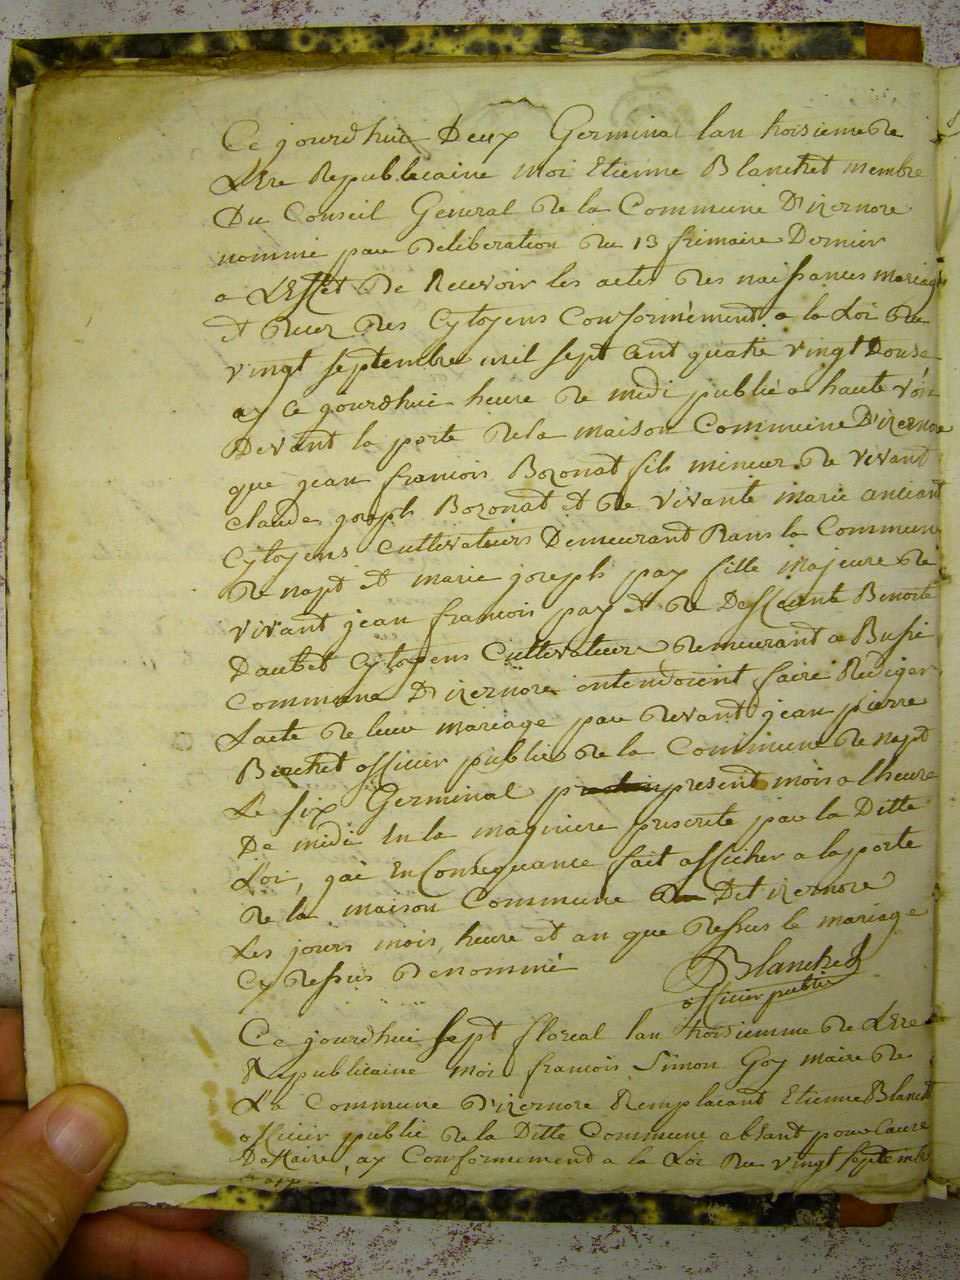 Ce jourdhui Deux Germinal lan troisieme de
LEre Republicaine moi Etienne Blanchet membre
Du Conseil General de la Commune D'izernore
nommé par deliberation du 13 frimaire Dernier
a LEffet de Recevoir les actes des naissances mariages
et deces des Cytoyens Conformément a la Loi du
vingt septembre mil sept Cent quatre vingt Douse
ay ce jourdhui heure de midi publié a haute voix
Devant la porte de la maison Commune D'izernore
que jean francois Bozonat fils mineur de vivant
claude joseph Bozonat et de vivante marie anciant
Cytoyens Cultivateurs Demeurant Dans la Commune
de napt et marie joseph pay fille majeure de
vivant jean francois pay et de Deffeunte Benoite
Daubet Cytoyens Cultivateurs demeurant a Bussi
Commune D'izernore entendoient faire Rediger
Lacte de leur mariage par devant jean pierre
officier public de la Commune de napt
Le six Germinal present mois a lheure
De midi En la magniere prescrite par la Ditte
Loi, jai En Consequance fait afficher a la porte
de la maison Commune Dit izernore
Les jours mois, heure et an que dessus le mariage
Cy dessus denommé
Blanchet
officier public
Ce jourdhui sept floreal lan troisiemme de LEre
Republicaine moi francois Simon Goy maire de
La Commune d'izernore Remplacant Etienne Blanchet
officier public de la Ditte Commune absant pour Cause
Daffaire, ay Conformement a la Loi du vingt septembre